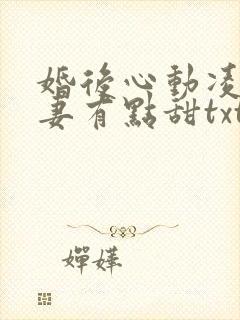 婚後心動凌
妻有點甜txt
嬋嬅